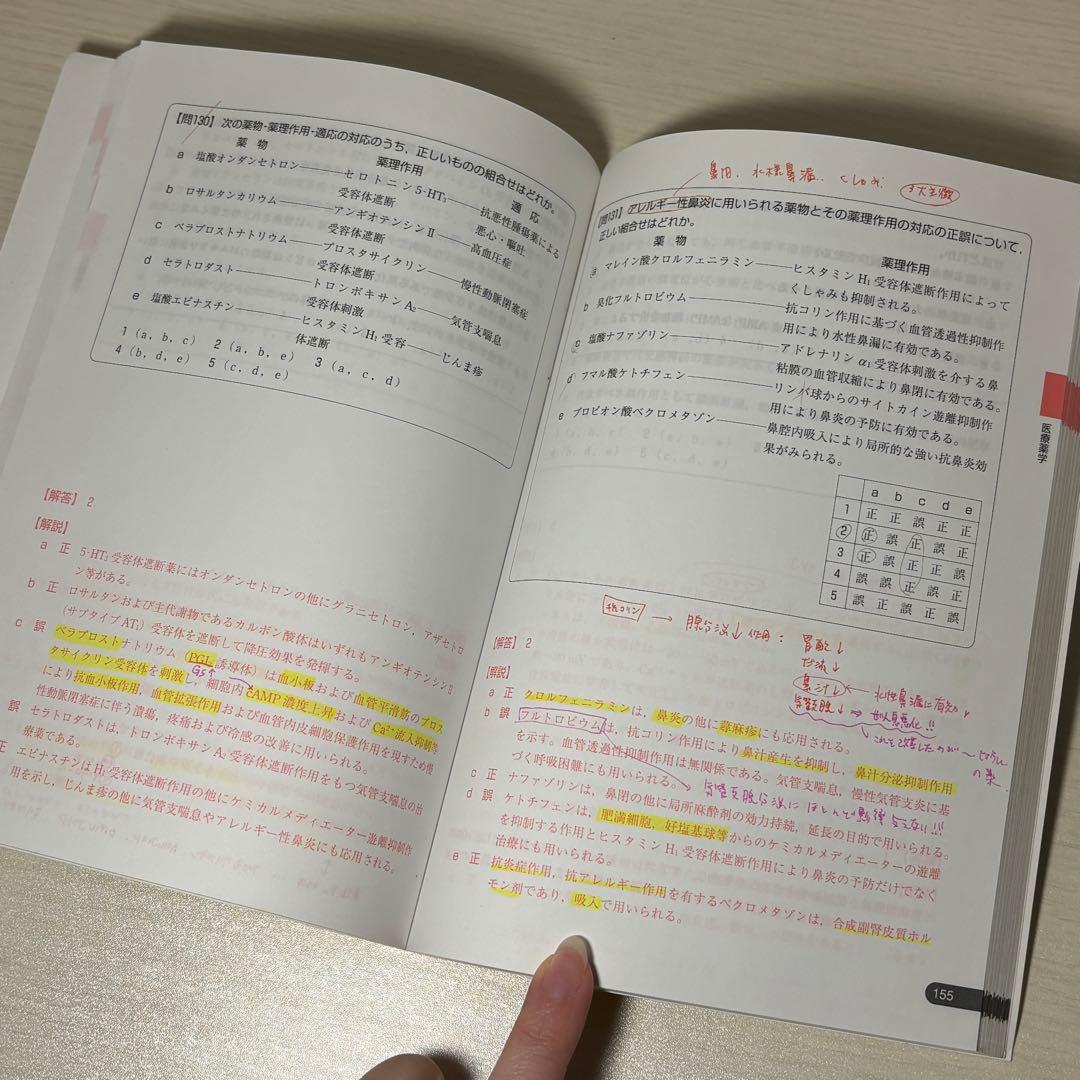 【問130】 次の薬物-薬理作用-適応の対応のうち，正しいものの組合せはどれか。
薬 物 薬理作用 適 応
a 塩酸オンダンセトロン――セロトニン5-HT₃受容体遮断――抗悪性腫瘍薬による悪心・嘔吐
b ロサルタンカリウム――アンギオテンシンⅡ受容体遮断――高血圧症
c ベラプロストナトリウム――プロスタサイクリン受容体遮断――慢性動脈閉塞症
d セラトロダスト――トロンボキサンA₂受容体刺激――気管支喘息
e 塩酸エピナスチン――ヒスタミンH₁受容体遮断――じんま疹
1 (a, b, c) 2 (a, b, e) 3 (a, c, d)
4 (b, d, e) 5 (c, d, e)
【解答】 2
【解説】
a 正 5-HT₃受容体遮断薬にはオンダンセトロンの他にグラニセトロン，アザセトロン等がある。
b 正 ロサルタンおよび主代謝物であるカルボン酸体はいずれもアンギオテンシンⅡ
(サブタイプAT₁) 受容体を遮断して降圧効果を発揮する。
c 誤 ベラプロストナトリウム (PGI₂誘導体) は血小板および血管平滑筋のプロス
タサイクリン受容体を刺激し，細胞内cAMP濃度上昇およびCa²⁺流入抑制等
Gs↑
により抗血小板作用，血管拡張作用および血管内皮細胞保護作用を現すため慢
性動脈閉塞症に伴う潰瘍，疼痛および冷感の改善に用いられる。
誤 セラトロダストは，トロンボキサンA₂受容体遮断作用をもつ気管支喘息の治
療薬である。
正 エピナスチンはH₁受容体遮断作用の他にケミカルメディエーター遊離抑制作
用を示し，じんま疹の他に気管支喘息やアレルギー性鼻炎にも応用される。
鼻閉、水様鼻漏、くしゃみ 3大主徴
【問131】 アレルギー性鼻炎に用いられる薬物とその薬理作用の対応の正誤について，
正しい組合せはどれか。
薬 物 薬理作用
a マレイン酸クロルフェニラミン――ヒスタミンH₁受容体遮断作用によって
くしゃみも抑制される。
b 臭化フルトロピウム――抗コリン作用に基づく血管透過性抑制作
用により水性鼻漏に有効である。
c 塩酸ナファゾリン――アドレナリンα₁受容体刺激を介する鼻
粘膜の血管収縮により鼻閉に有効である。
d フマル酸ケトチフェン――リンパ球からのサイトカイン遊離抑制作
用により鼻炎の予防に有効である。
e プロピオン酸ベクロメタゾン――鼻腔内吸入により局所的な強い抗鼻炎効
果がみられる。
a b c d e
1 正 正 誤 正 正
2 正 誤 正 誤 正
3 正 誤 正 正 誤
4 誤 誤 正 誤 正
5 誤 正 誤 正 誤
抗コリン → 腺分泌↓作用：胃酸↓
だ液↓
鼻汁↓ ← 水性鼻漏に有効
【解答】 2
【解説】
a 正 クロルフェニラミンは，鼻炎の他に蕁麻疹にも応用される。
b 誤 フルトロピウムは，抗コリン作用により鼻汁産生を抑制し，鼻汁分泌抑制作用
を示す。血管透過性抑制作用は無関係である。気管支喘息，慢性気管支炎に基
づく呼吸困難にも用いられる。
c 正 ナファゾリンは，鼻閉の他に局所麻酔剤の効力持続，延長の目的で用いられる。
d 誤 ケトチフェンは，肥満細胞，好塩基球等からのケミカルメディエーターの遊離
を抑制する作用とヒスタミンH₁受容体遮断作用により鼻炎の予防だけでなく
治療にも用いられる。
e 正 抗炎症作用，抗アレルギー作用を有するベクロメタゾンは，合成副腎皮質ホル
モン剤であり，吸入で用いられる。
医療薬学
155